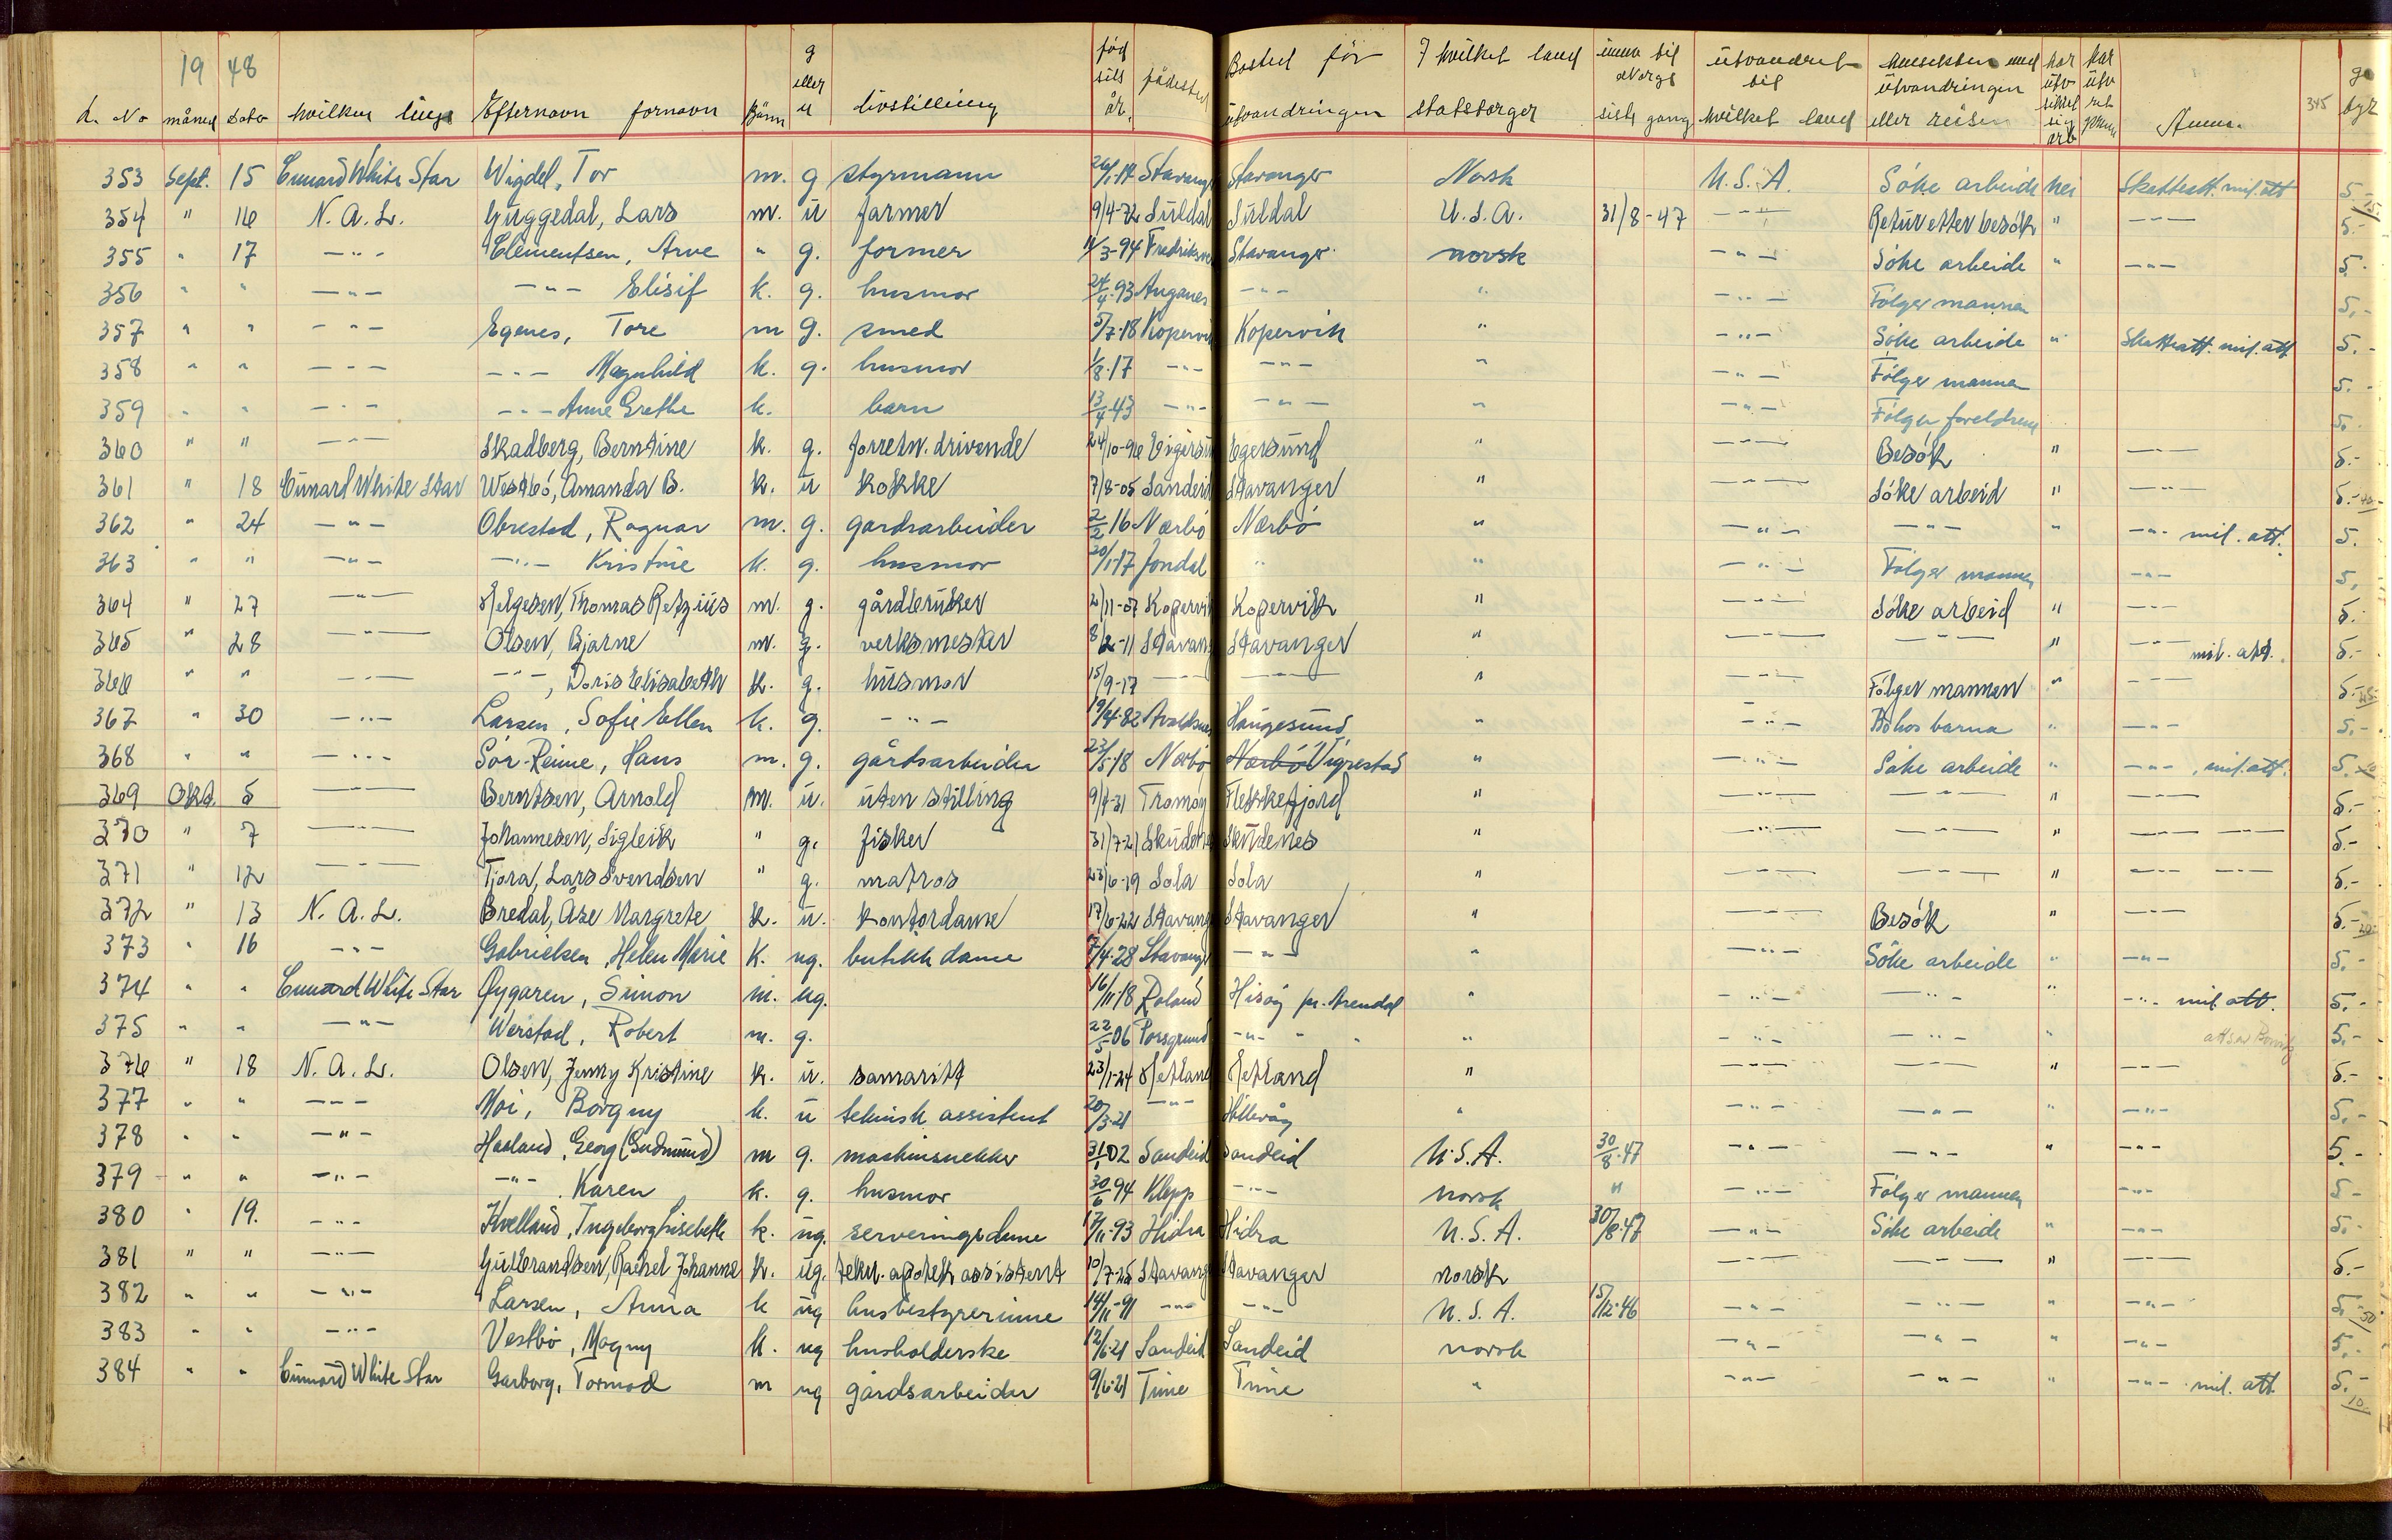 19 48
L. No måned dato hvilken linje Efternavn fornavn kjönn g eller u livstilling föd sels år. födested Bosted för utvandringen I hvilket land statsborger innv til Norge siste gang utvandret til hvilket land hensikten med utvandringen eller reisen har utv sikret sig arb har utv ret Anm. 345 ge byr
353 Sept. 15 Cunard White Star Wigdel, Tor m. g styrmann 26/1-14 Stavang Stavanger Norsk U.S.A. Söke arbeide nei Skatteatt. mil. att 5.-
354 " 16 N.A.L. Guggedal, Lars m. u farmer 9/4-72 Suldal Suldal U.S.A. 31/8-47 -"- Retur etter besök " -"- 5.-
355 " 17 -"- Clementsen, Arve " g. former 11/3-94 Fredriksv Stavanger norsk -"- Söke arbeide " -"- 5.-
356 " " -"- -"- Elisif k. g. husmor 24/4-93 -"- " -"- Fölger mannen 5,-
357 " " -"- Egenes, Tore m g. smed 5/7-18 Kopervik Kopervik " -"- Söke arbeide " Skatteatt. mil. att 5.-
358 " " -"- -"- Magnhild k. g. husmor 1/8-17 -"- -"- " -"- Fölger mannen 5.-
359 " " -"- -"- Anne Grethe k. barn 13/4-43 -"- -"- " -"- Fölger foreldrene 5.-
360 " " -"- Skadberg, Berntine k. g. forretn. drivende 24/10-96 Eigersu Egersund " -"- Besök " -"- 5.-
361 " 18 Cunard White Star Westbö, Amanda B. k. u kokke 7/8-05 Sandeid Stavanger " -"- Söke arbeid " -"- 5.- 40.-
362 " 24 -"- Obrestad, Ragnar m. g. gardsarbeider 2/2 16 Nærbö Nærbö " -"- -"- " -"- mil. att. 5.
363 " " -"- -"- Kristine k. g. husmor 20/1-17 Jondal " " -"- Fölger mannen -"- 5,
364 " 27 -"- Helgesen, Thomas Retzius m. g. gårdbruker 2/11-07 Kopervik Kopervik " -"- Söke arbeid " -"- 5.-
365 " 28 -"- Olsen, Bjarne m. g. verksmester 8/2-11 Stavang Stavanger " -"- -"- " -"- mil. att. 5.-
366 " " -"- -"-, Doris Elisabeth k. g. husmor 15/9-17 -"- -"- " -"- Fölger mannen " -"- 5.-
367 " 30 -"- Larsen, Sofie Ellen k. g. -"- 19/4-82 Avaldsnes Haugesund " -"- Bo hos barna " -"- 5.-
368 " " -"- Sör-Reime, Hans m. g. gårdsarbeider 23/5-18 Nærbö Nærbö Vigrestad " -"- Söke arbeide " -"-, mil. att. 5.-
369 Okt. 5 -"- Berntsen, Arnold m. u. uten stilling 9/7-31 Tromøy Flekkefjord " -"- -"- " -"- 5.-
370 " 7 -"- Johannesen, Sigleik " g. fisker 31/7-21 Skudene Skudenes " -"- -"- " -"- -"- 5.-
371 " 12 -"- Tjora, Lars Svendsen " g. matros 23/6-19 Sola Sola " -"- -"- " -"- -"- 5.-
372 " 13 N.A.L. Bredal, Ase Margrete k. u. kontordame 17/6-22 Stavang Stavanger " -"- Besök " -"- 5.- 20.-
373 " 16 -"- Gabrielsen, Helen Marie k. ug. butikk dame 7/4-28 Stavang -"- " -"- Söke arbeide " -"- 5.-
374 " " Cunard White Star Øygaren, Simon m. ug. 16/11-18 Roland Hisøy pr. Arendal " -"- -"- " -"- mil. att. 5.-
375 " " -"- Werstad, Robert m. g. 22/5 06 Porsgrund -"- " " -"- -"- " 5.-
376 " 18 N.A.L. Olsen, Jenny Kristine k. u. samaritt 23/1-24 Hetland Hetland " -"- -"- " -"- 5.-
377 " " -"- Moi, Borgny k. u teknisk assistent 20/3-21 -"- Hillevåg " -"- -"- " -"- 5.-
378 " " -"- Haaland, Georg (Gudmund) m g. maskinsnekker 31/1 02 Sandeid Sandeid U.S.A. 30/8-47 -"- -"- " -"- 5.-
379 " " -"- -"- Karen k. g. husmor 30/6 94 Klepp -"- norsk " -"- Fölger mannen -"- 5-
380 " 19. -"- Kvelland, Ingeborg Lisebeth k. ug. serveringsdame 17/11-93 Hidra Hidra U.S.A. 30/8-47 -"- Söke arbeide " -"- 5.-
381 " " -"- Gulbrandsen, Rachel Johanne k. ug. tekn. apotek assistent 10/7-25 Stavang Stavanger norsk -"- -"- " -"- 5.-
382 " " -"- Larsen, Anna k ug husbestyrerinne 14/11-91 -"- -"- U.S.A. 15/12-46 -"- -"- " -"- 5.- 50
383 " " -"- Vestbö, Magny k. ug husholderske 12/6-21 Sandeid Sandeid norsk -"- -"- " -"- 5.-
384 " " Cunard White Star Garborg, Tormod m ug gårdsarbeider 9/6-21 Time Time " -"- -"- " -"- mil. att 5.- 10.-